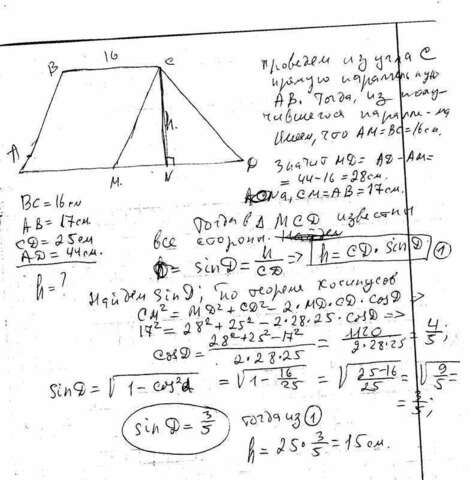 16
B
C
h
A
M
N
D
Проведем из угла C
прямую параллельную
AB. Тогда, из полу-
чившегося паралле-ма
Имеем, что AM=BC=16см.
Значит MD = AD-AM=
= 44-16 = 28см.
CM=AB=17см.
BC=16см
AB=17см
CD=25см
AD=44см.
h=?
Тогда в Δ MCD известны
все стороны.
sinD = h/CD => h = CD·sinD ①
Найдем sinD; По теореме косинусов
CM² = MD² + CD² - 2·MD·CD·cosD =>
17² = 28² + 25² - 2·28·25·cosD =>
cosD = (28²+25²-17²)/(2·28·25) = 1120/(2·28·25) = 4/5;
sinD = √(1-cos²d) = √(1-16/25) = √((25-16)/25) = √(9/5) =
= 3/5;
sinD = 3/5
тогда из ①
h = 25·3/5 = 15см.